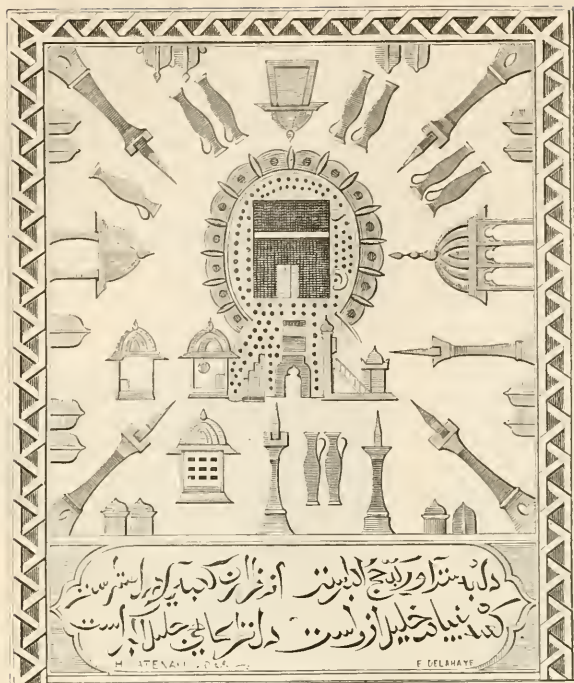 دل بدست آور که حج اکبرست از هزاران کعبه یکدل بهترست
کعبه بنیاد خلیل آزرست دل نظرگاه جلیل اکبرست
F. DELAHAYE